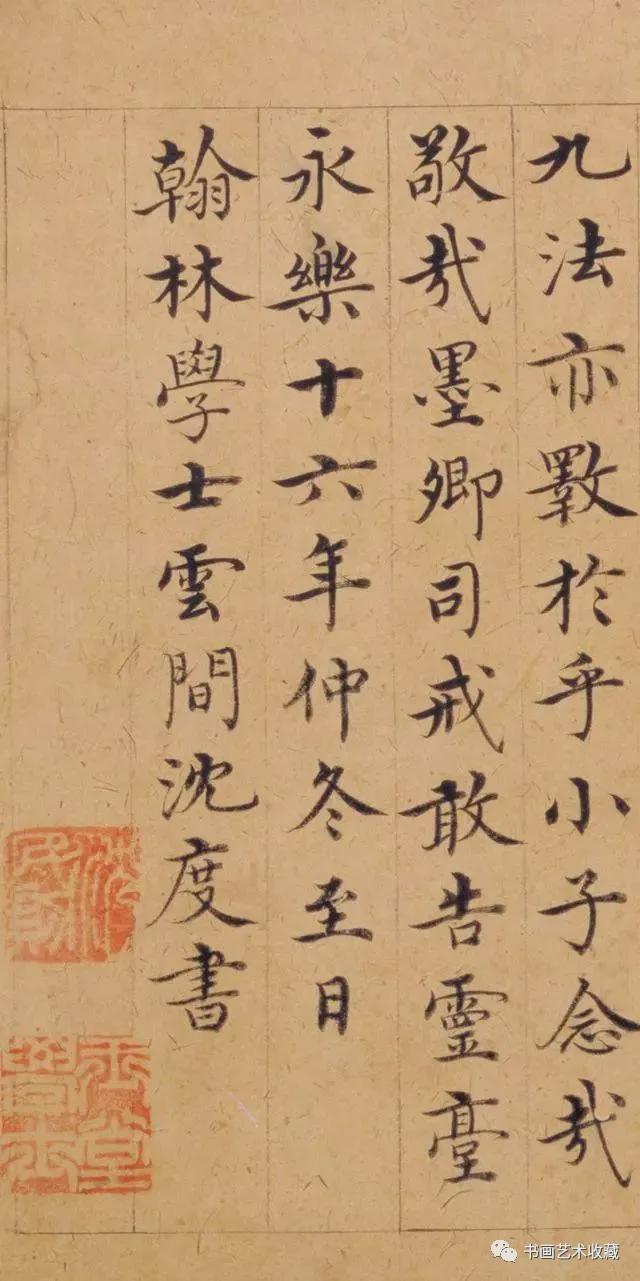 九法亦斁於乎小子念哉
敬哉墨卿司戒敢告靈臺
永樂十六年仲冬至日
翰林學士雲間沈度書
沈氏民則
玉堂學士
书画艺术收藏